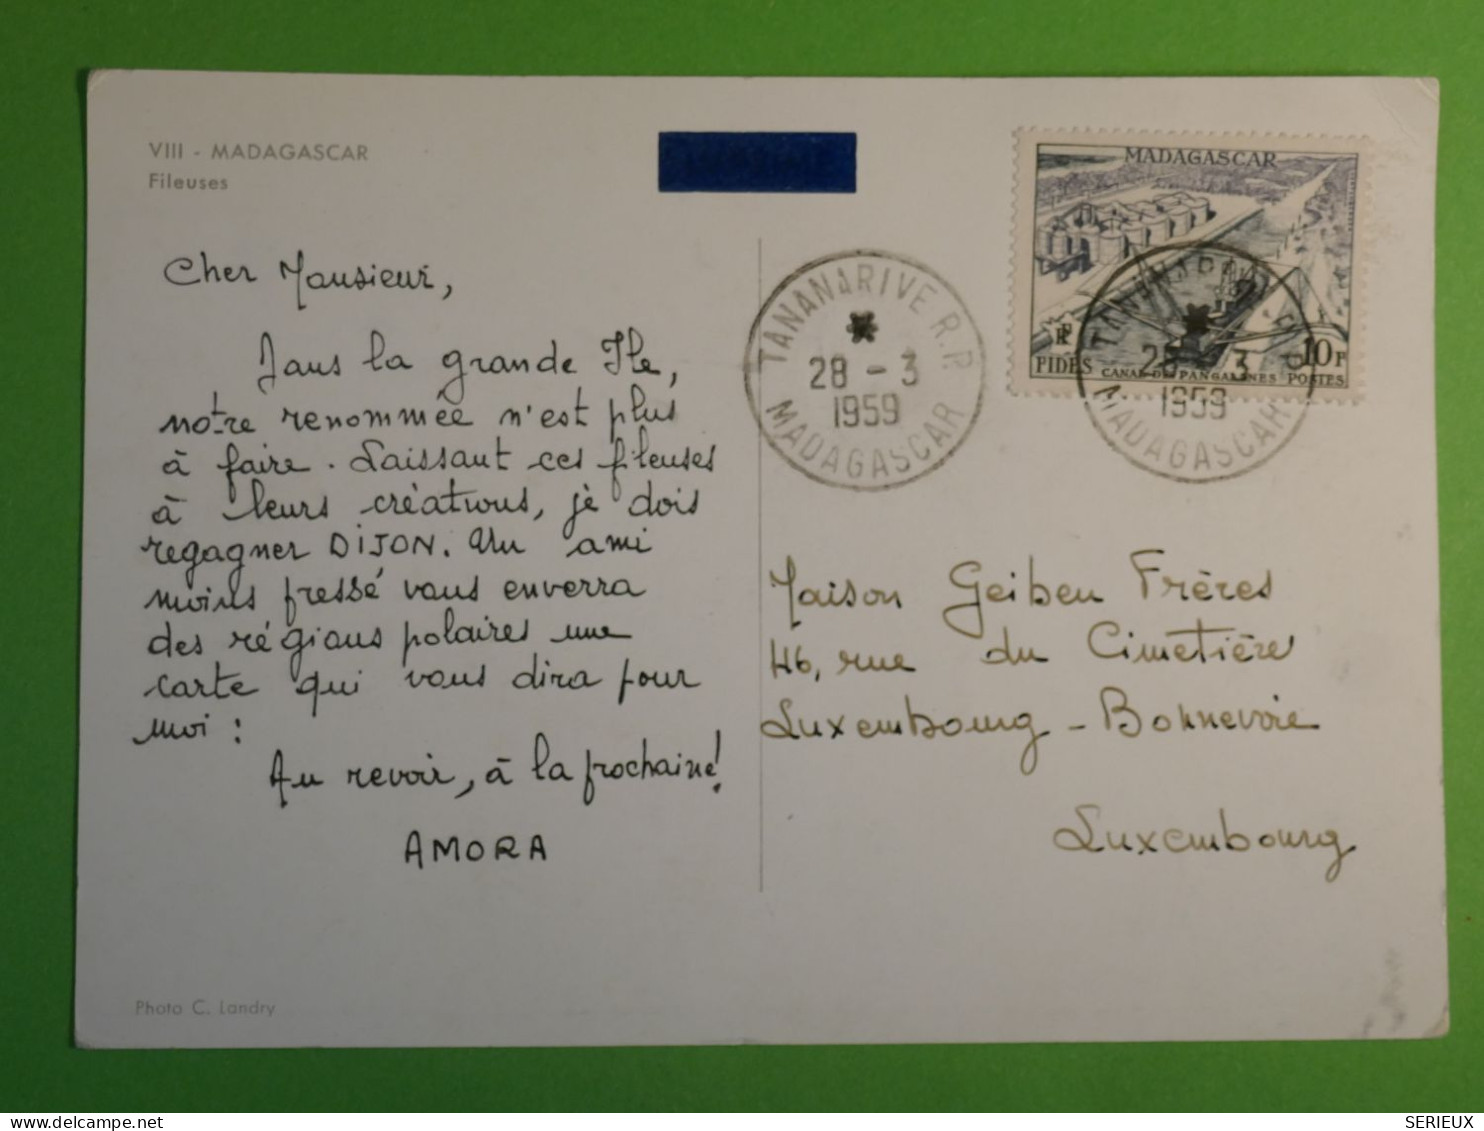 VIII - MADAGASCAR
Fileuses
Cher Monsieur,
Dans la grande Ile,
notre renommée n'est plus
à faire. Laissant ces fileuses
à leurs créations, je dois
regagner DIJON. Un ami
moins pressé vous enverra
des régions polaires une
carte qui vous dira pour
moi :
Au revoir, à la prochaine!
AMORA
Photo C. Landry
MADAGASCAR
RF
FIDES
CANAL DES PANGALANES
10F
POSTES
TANANARIVE R.P.
28 - 3
1959
MADAGASCAR
TANANARIVE R.P.
28 - 3
1959
MADAGASCAR
Maison Geiben Frères
46, rue du Cimetière
Luxembourg - Bonnevoie
Luxembourg
SERIEUX